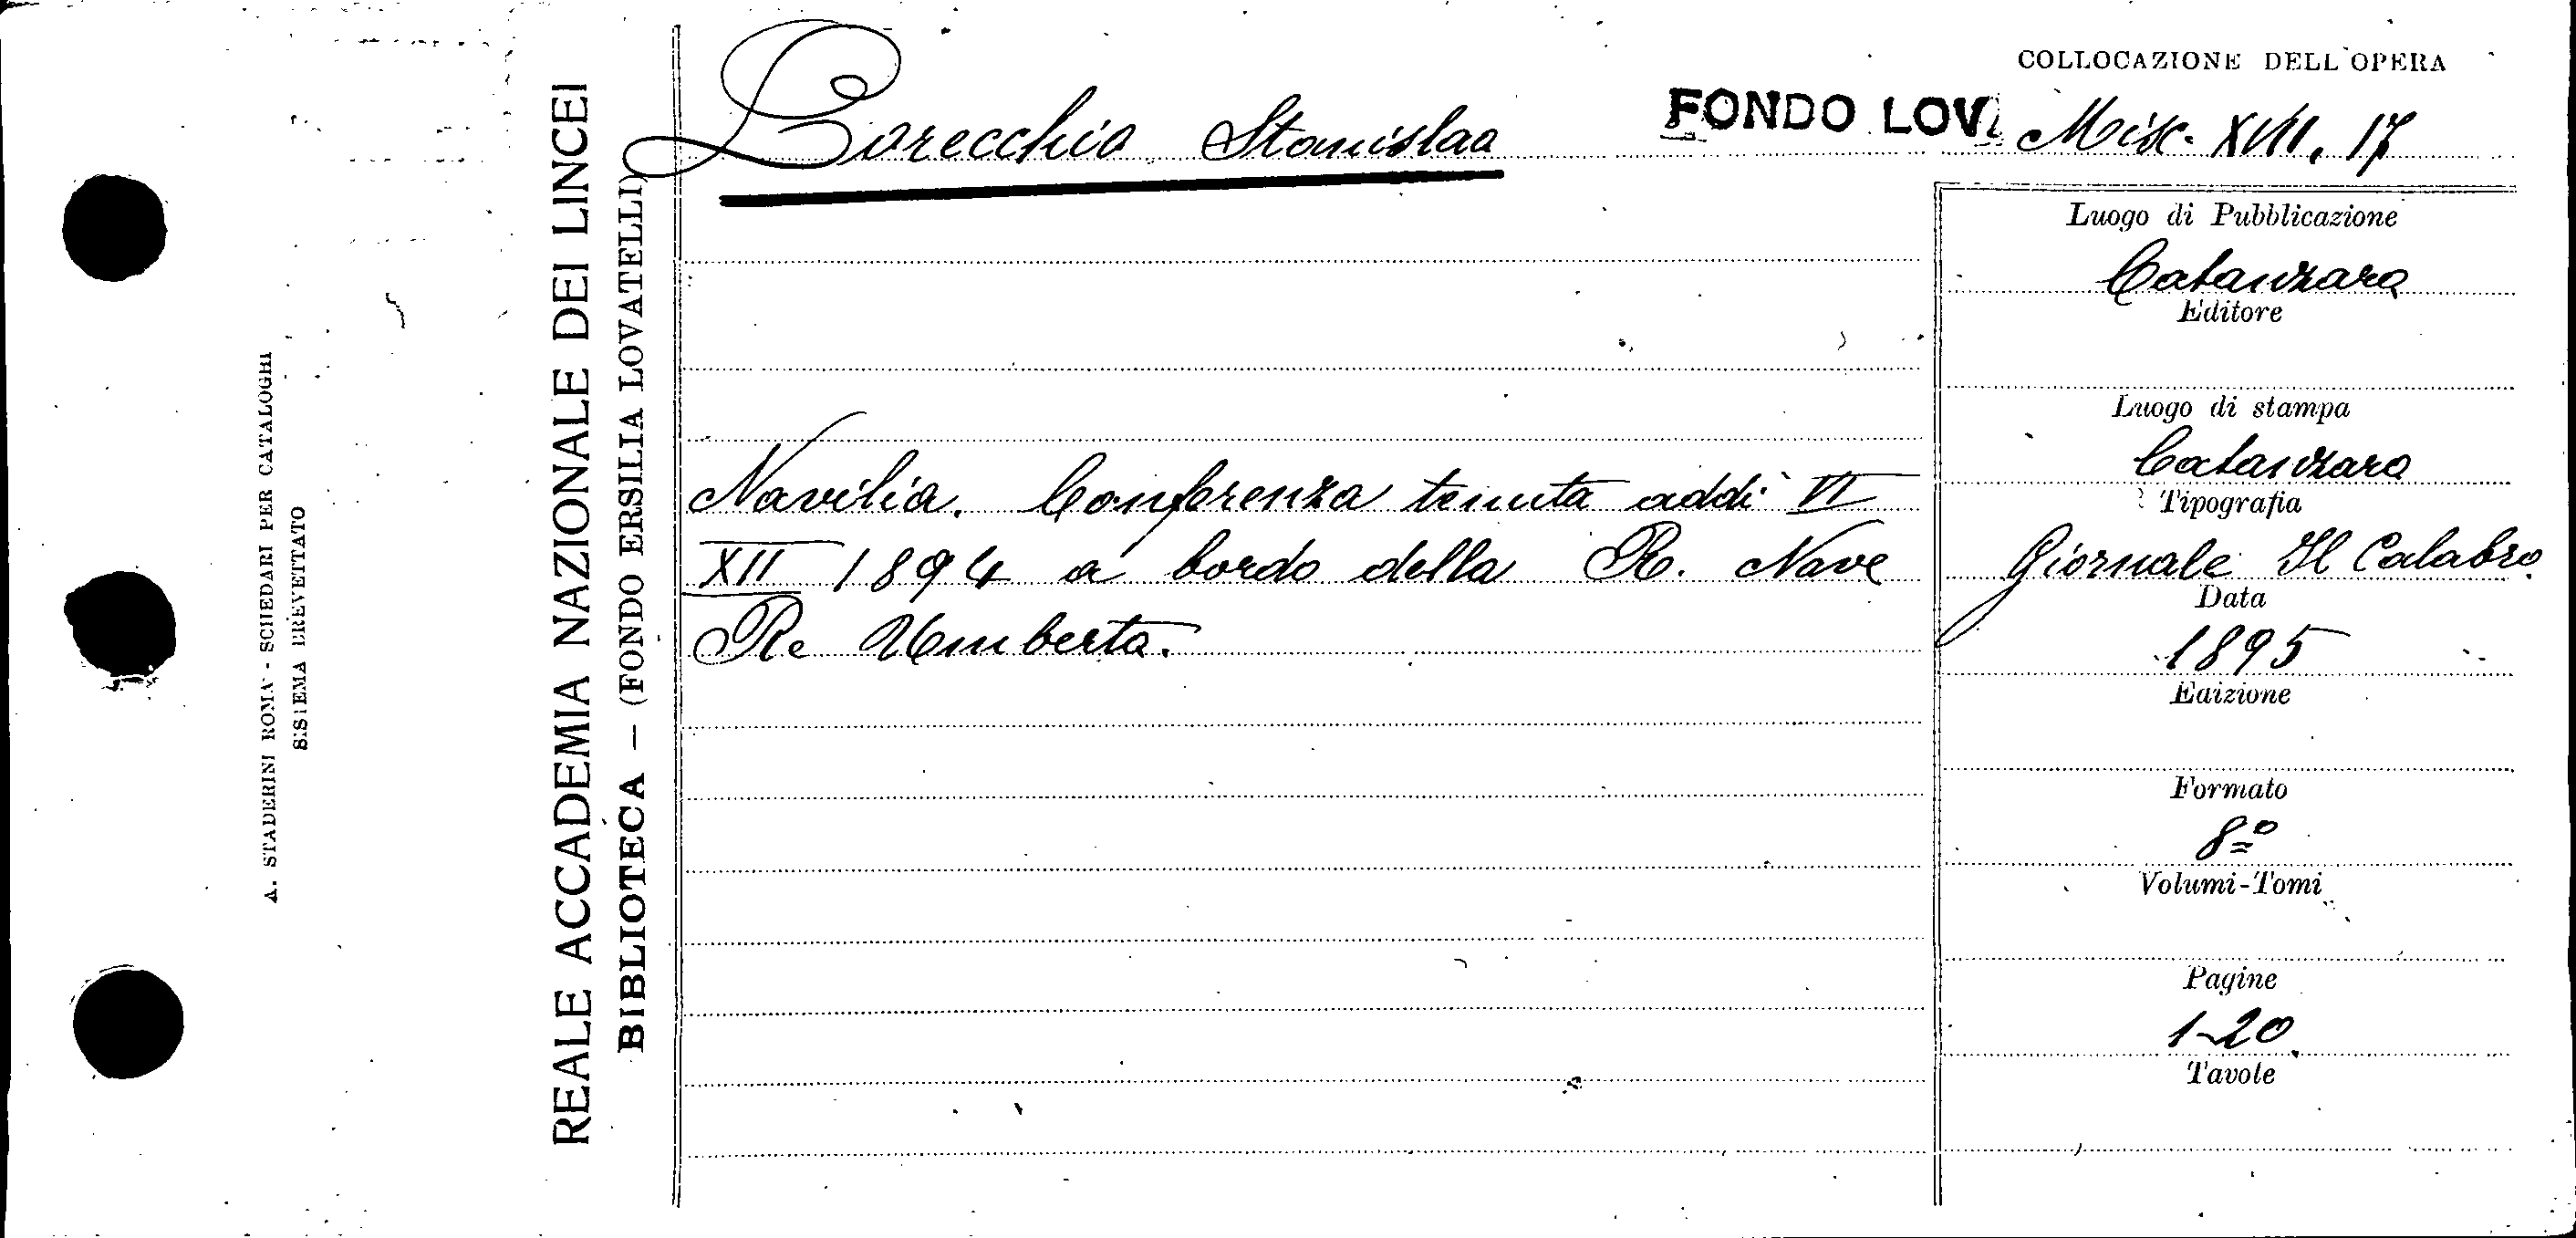 COLLOCAZIONE DELL'OPERA
Lorecchio Stanislao
FONDO LOV. Misc. XVIII. 17
Luogo di Pubblicazione
Catanzaro
Editore
Luogo di stampa
Catanzaro
Tipografia
Giornale Il Calabro
Data
1895
Edizione
Formato
8º
Volumi-Tomi
Pagine
1-20
Tavole
Navilia. Conferenza tenuta addì VI
XII 1894 a bordo della R. Nave
Re Umberto.
REALE ACCADEMIA NAZIONALE DEI LINCEI
BIBLIOTECA — (FONDO ERSILIA LOVATELLI)
A. STADERINI ROMA - SCHEDARI PER CATALOGHI
SISTEMA BREVETTATO